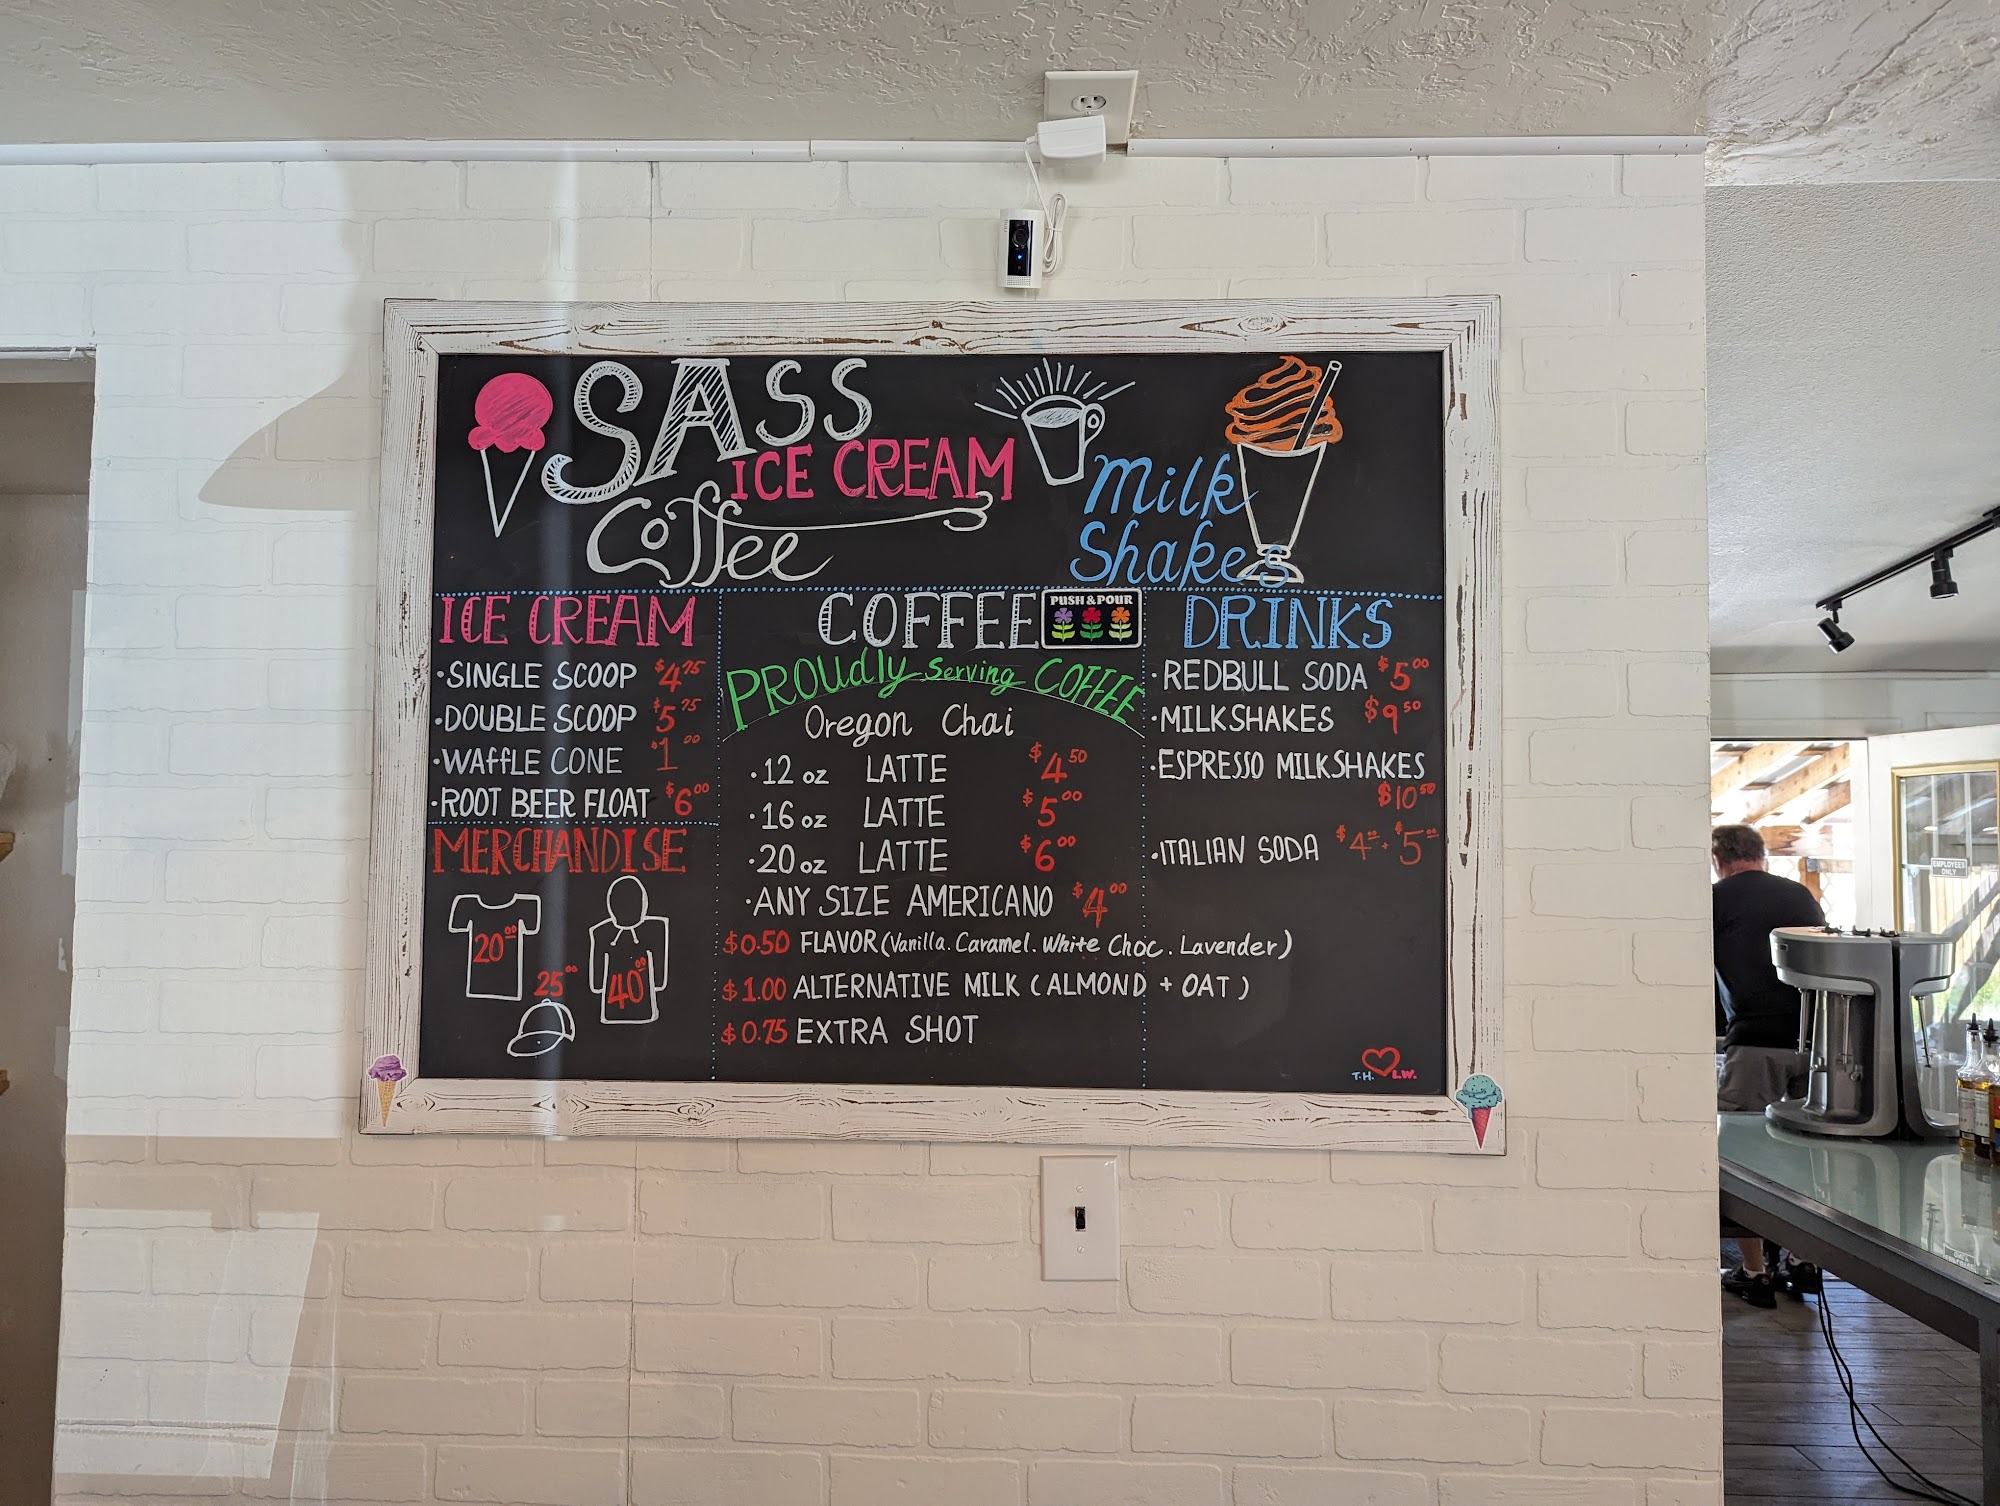 SASS
ICE CREAM
Coffee
Milk
Shakes
ICE CREAM
·SINGLE SCOOP $4.75
·DOUBLE SCOOP $5.75
·WAFFLE CONE $1.00
·ROOT BEER FLOAT $6.00
MERCHANDISE
20.00
25.00
40.00
COFFEE
PUSH & POUR
PROUDLY Serving COFFEE
Oregon Chai
·12 oz LATTE $4.50
·16 oz LATTE $5.00
·20 oz LATTE $6.00
·ANY SIZE AMERICANO $4.00
$0.50 FLAVOR (Vanilla. Caramel. White Choc. Lavender)
$1.00 ALTERNATIVE MILK (ALMOND + OAT)
$0.75 EXTRA SHOT
DRINKS
·REDBULL SODA $5.00
·MILKSHAKES $9.50
·ESPRESSO MILKSHAKES
$10.50
·ITALIAN SODA $4 $5
T.H. L.W.
EMPLOYEES
ONLY